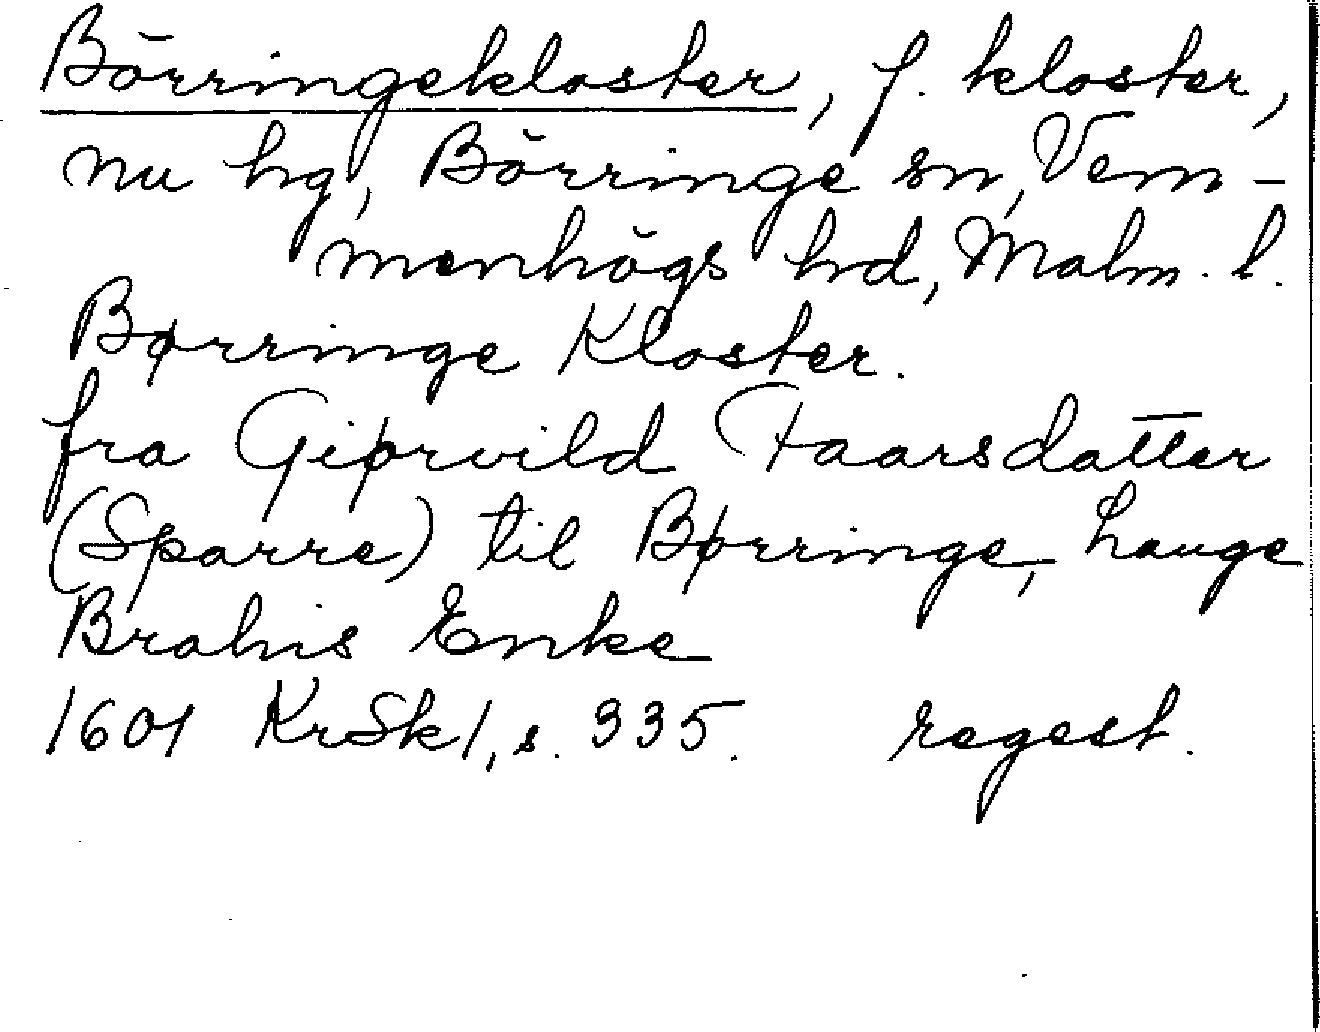 Börringekloster, f. kloster,
nu hg, Börringe sn, Vem-
menhögs hd, Malm. l.
Børringe Kloster.
fra Giørvild Faarsdatter
(Sparre) til Børringe, Lauge
Brahis Enke
1601 KrSk1, s. 335. regest.